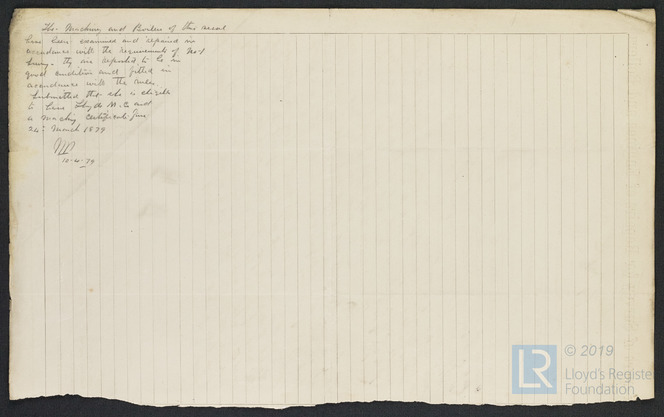 The Machinery and Boilers of this vessel
have been examined and repaired in
accordance with the requirements of No 1
Survey. They are reported to be in
good condition and fitted in
accordance with the rules.
Submitted that she is eligible
to have Lloyds M.C. and
a Machy Certificate from
24th March 1879
10.4.79
© 2019
LR
Lloyd's Register
Foundation